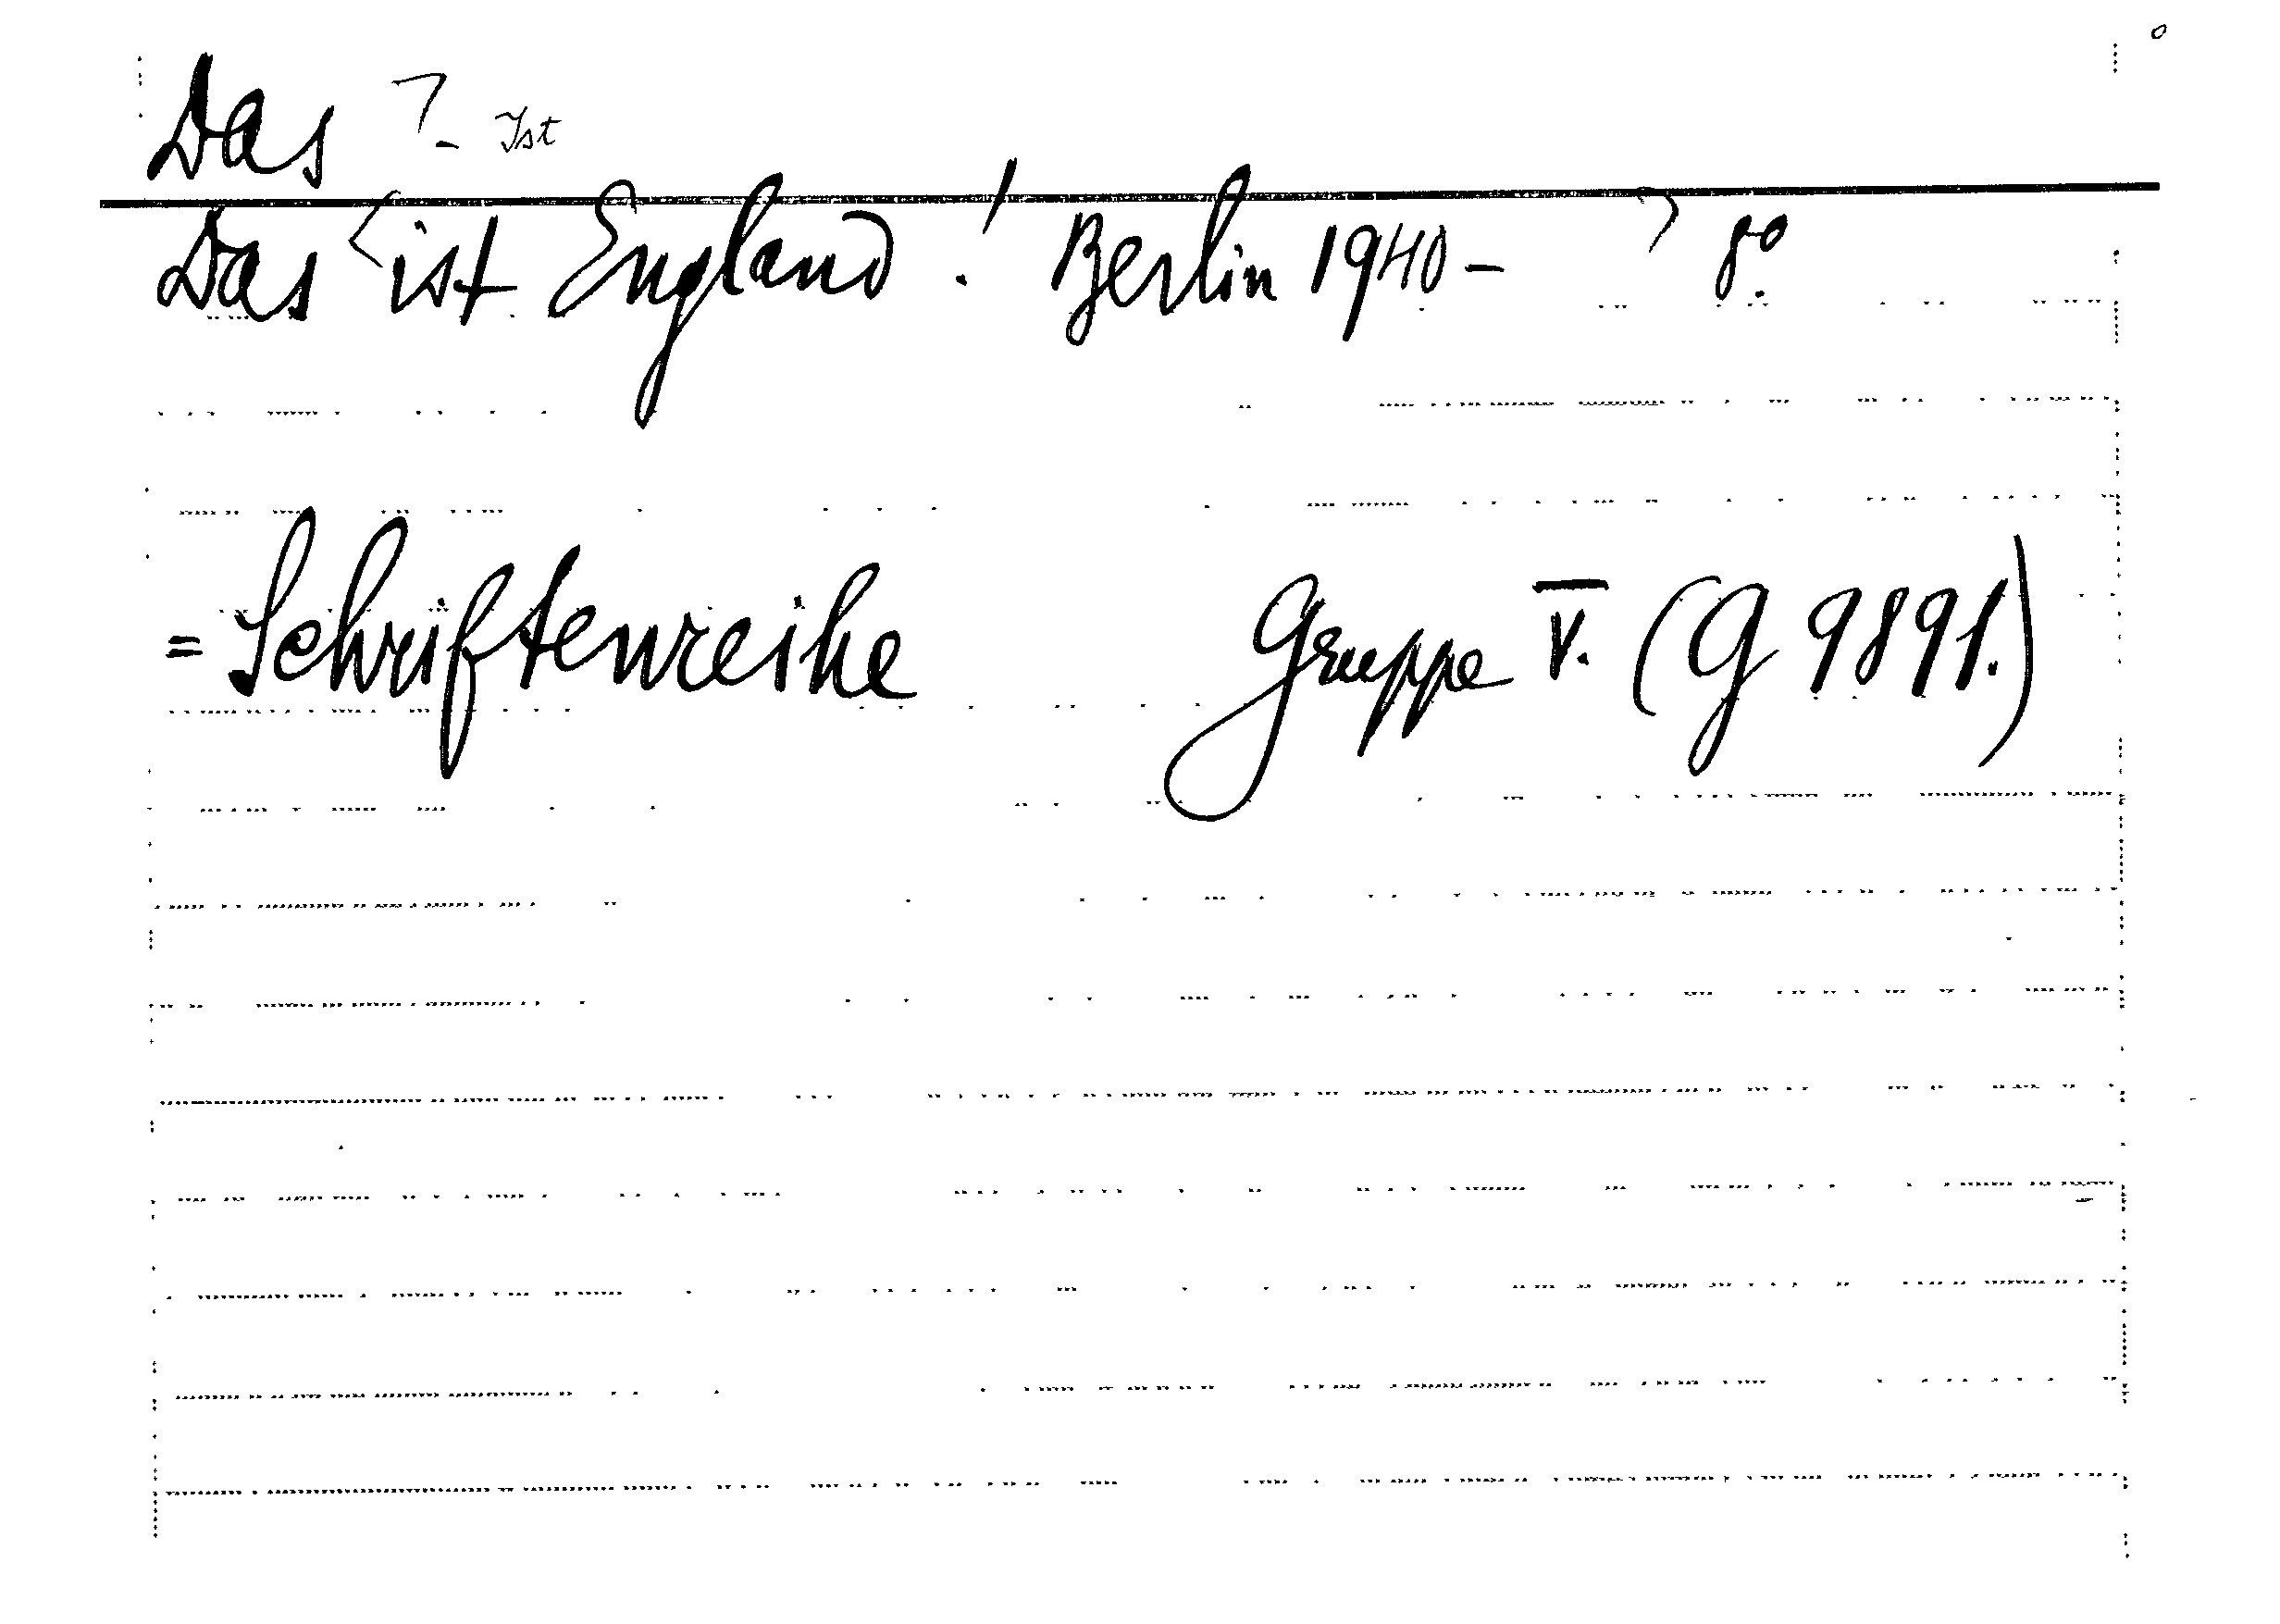 Das ⌉- Ist
Das <ist England! Berlin 1940- > 8°.
= Schriftenreihe Gruppe V. (G 9891.)